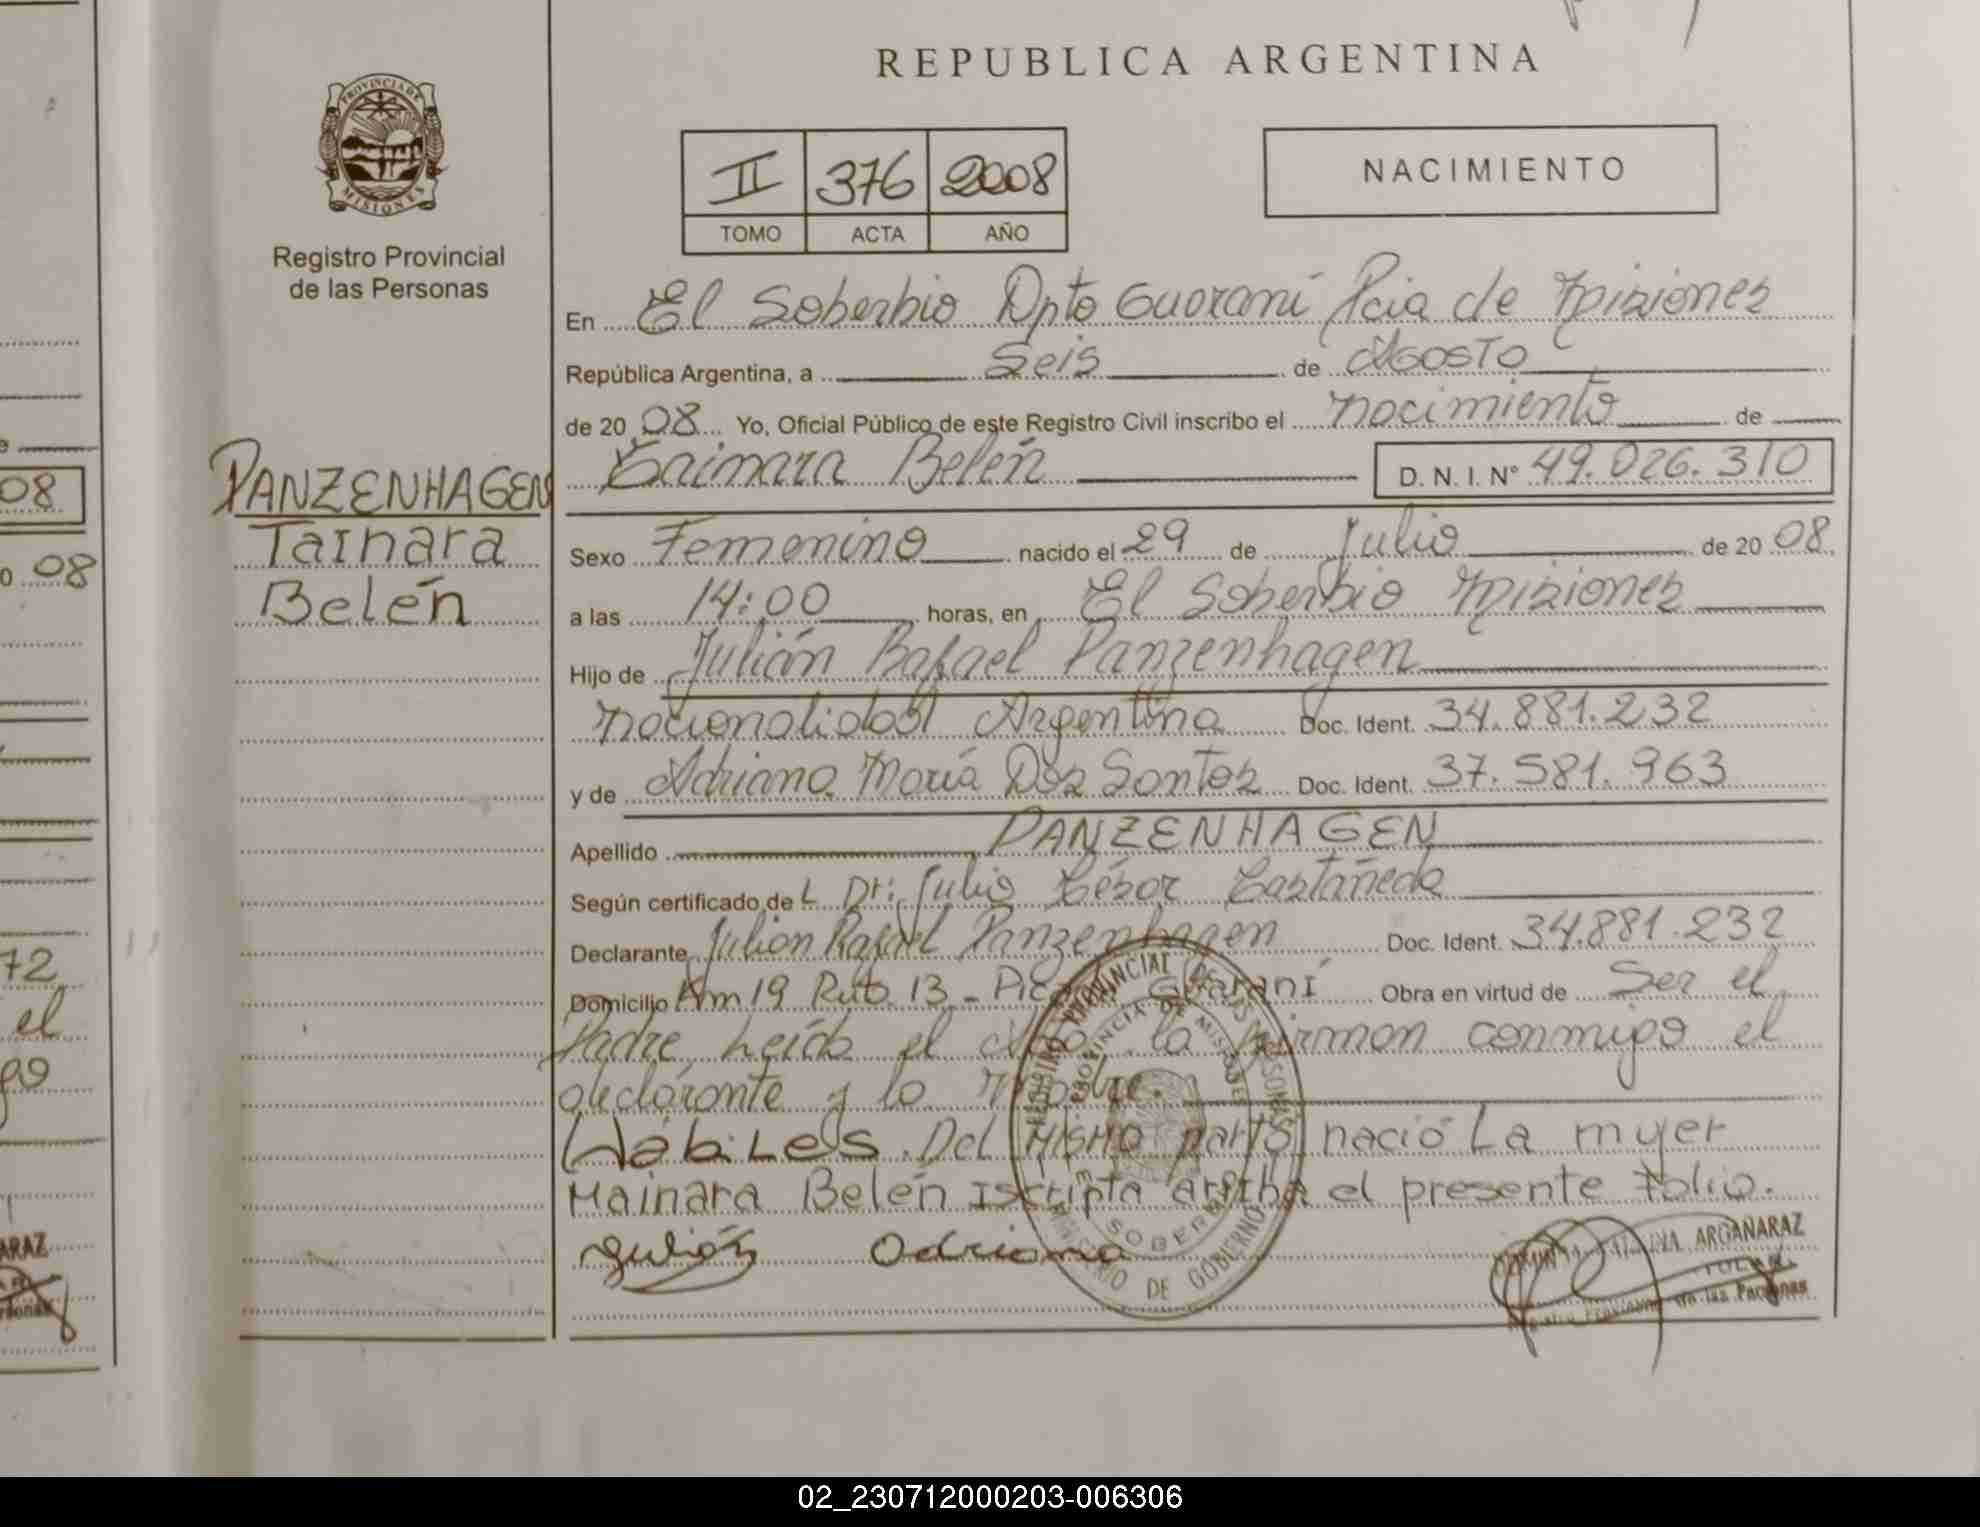 REPUBLICA ARGENTINA
PROVINCIA DE
MISIONES
Registro Provincial
de las Personas
II 376 2008
TOMO ACTA AÑO
NACIMIENTO
En El Soberbio Dpto Guaraní Pcia de Misiones
República Argentina, a Seis de Agosto
de 2008 Yo, Oficial Público de este Registro Civil inscribo el nacimiento de
Tainara Belén D. N. I. N° 49.026.310
PANZENHAGEN
Tainara
Belén
Sexo Femenino nacido el 29 de Julio de 2008
a las 14:00 horas, en El Soberbio Misiones
Hijo de Julián Rafael Panzenhagen
nacionalidad Argentina Doc. Ident. 34.881.232
y de Adriana María Dos Santos Doc. Ident. 37.581.963
Apellido PANZENHAGEN
Según certificado de L Dr: Julio César Castañeda
Declarante Julian Rafael Panzenhagen Doc. Ident. 34.881.232
Domicilio Km 19 Ruta 13 - Guaraní Obra en virtud de Ser el
Padre Leída el Acta, la firman conmigo el
declarante y la Madre.
Hábiles. Del mismo parto nació La mujer
Mainara Belén Iscripta arriba el presente Folio.
Julián Adriana
REGISTRO PROVINCIAL DE LAS PERSONAS
PROVINCIA DE MISIONES
MINISTERIO DE GOBIERNO
ARGAÑARAZ
de las Personas
08
08
72
el
go
ARAZ
02_230712000203-006306